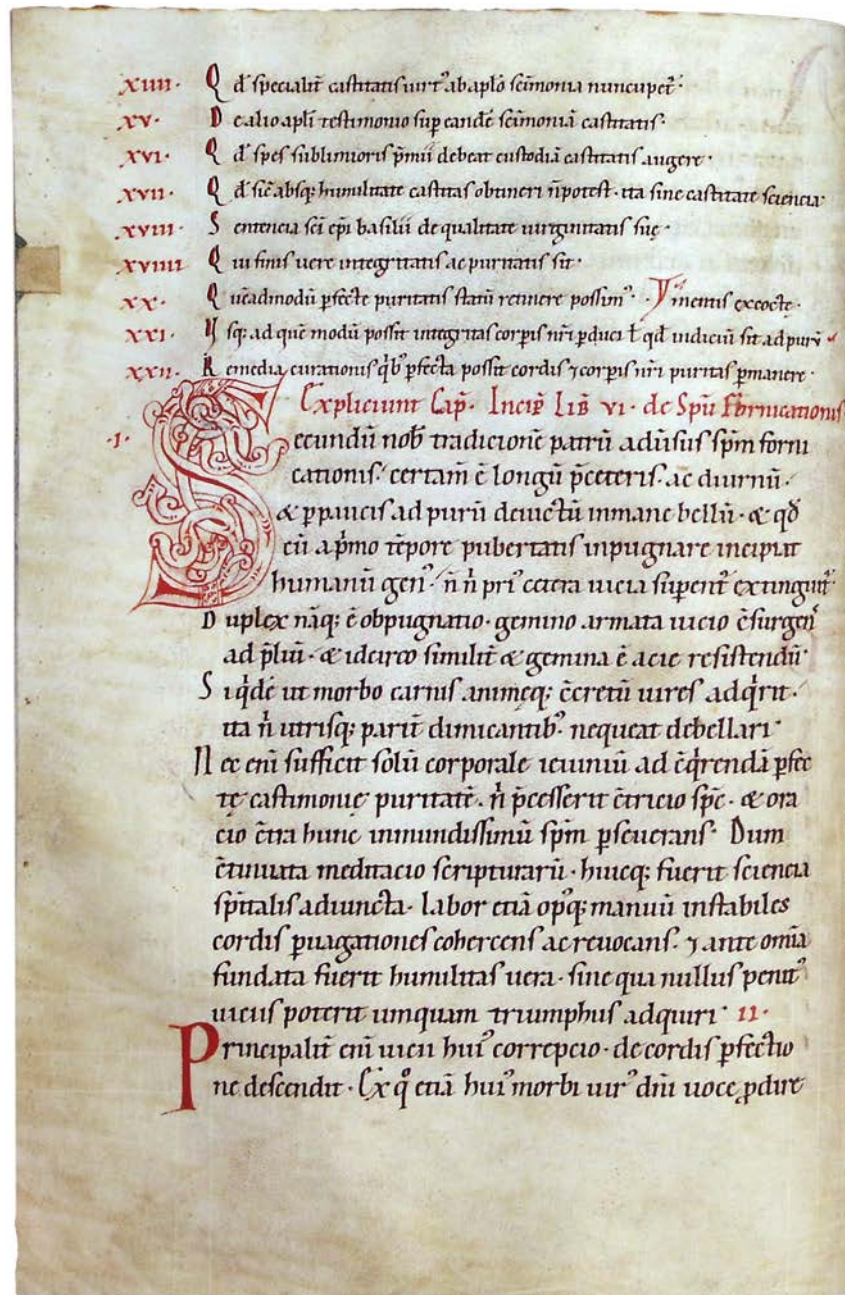 XIIII· Qđ specialit̄ castitatis uirt᾽ ab ap̄lo sc̄imonia nuncupet᷑·
XV· De alio apl̄i testimonio sup̄ eandē sc̄imoniā castitatis·
XVI· Qđ spes sublimioris p̄mii debeat custodiā castitatis augere·
XVII· Qđ sic̄ absq; humilitate castitas obtineri n̄ potest· ita sine castitate sciencia·
XVIII· Sentencia sc̄i ep̄i basilii de qualitate uirginitatis suę·
XVIIII· Qui finis uere integritatis ac puritatis sit·
XX· Quēadmodū p̄fecte puritatis statū retinere possim᾽· mentis excocte·
XXI· Usq; ad quē modū possit integritas corp̄is nr̄i p̄duci ł qđ indiciū sit ad purū
XXII· Remedia curationis qͥb᾽ p̄fecta possit cordis ⁊ corp̄is nr̄i puritas p̄manere·
Expliciunt Cap̄· Incip̄ Lib̄ VI· de Sp̄u Fornicationis
·I· Secundū nob̄ tradicionē patrū aduͥsus sp̄m forni
cationis· certam̄ ē longū p̄ceteris· ac diurnū·
& p̄paucis ad purū deuictū inmane bellū· & qđ
cū a pͥmo tēpore pubertatis inpugnare incipiat
humanū gen᾽· n̄ nͥ pri᾽ cetera uicia sup̄ent᷑ extinguit᷑·
Duplex nāq; ē obpugnatio· gemino armata uicio c̄surgenͥ
ad p̄liū· & idcirco similit̄ & gemina ē acie resistendū·
Siqͥdē ut morbo carnis animęq; c̄cretū uires adqͥrit·
ita nͥ utrisq; parit̄ dimicantib᾽ nequeat debellari·
Nec enī sufficit solū corporale ieiuniū ad c̄qͥrendā p̄fec
tę castimonię puritatē· nͥ p̄cesserit c̄tricio sp̄c· & ora
cio c̄tra hunc inmundissimū sp̄m p̄seuerans· Dum
c̄tinuata meditacio scripturarū· huicq; fuerit sciencia
sp̄italis adiuncta· labor etiā op᾽q; manuū instabiles
cordis p̄uagationes cohercens ac reuocans· ⁊ ante om̄ia
fundata fuerit humilitas uera· sine qua nullus penit᾽
uicius poterit umquam triumphus adquiri· II·
Principalit̄ enī uicii hui᾽ correpcio· de cordis p̄fectio
ne descendit· Ex qͦ etiā hui᾽ morbi uir᾽ dn̄i uoce p̄dire